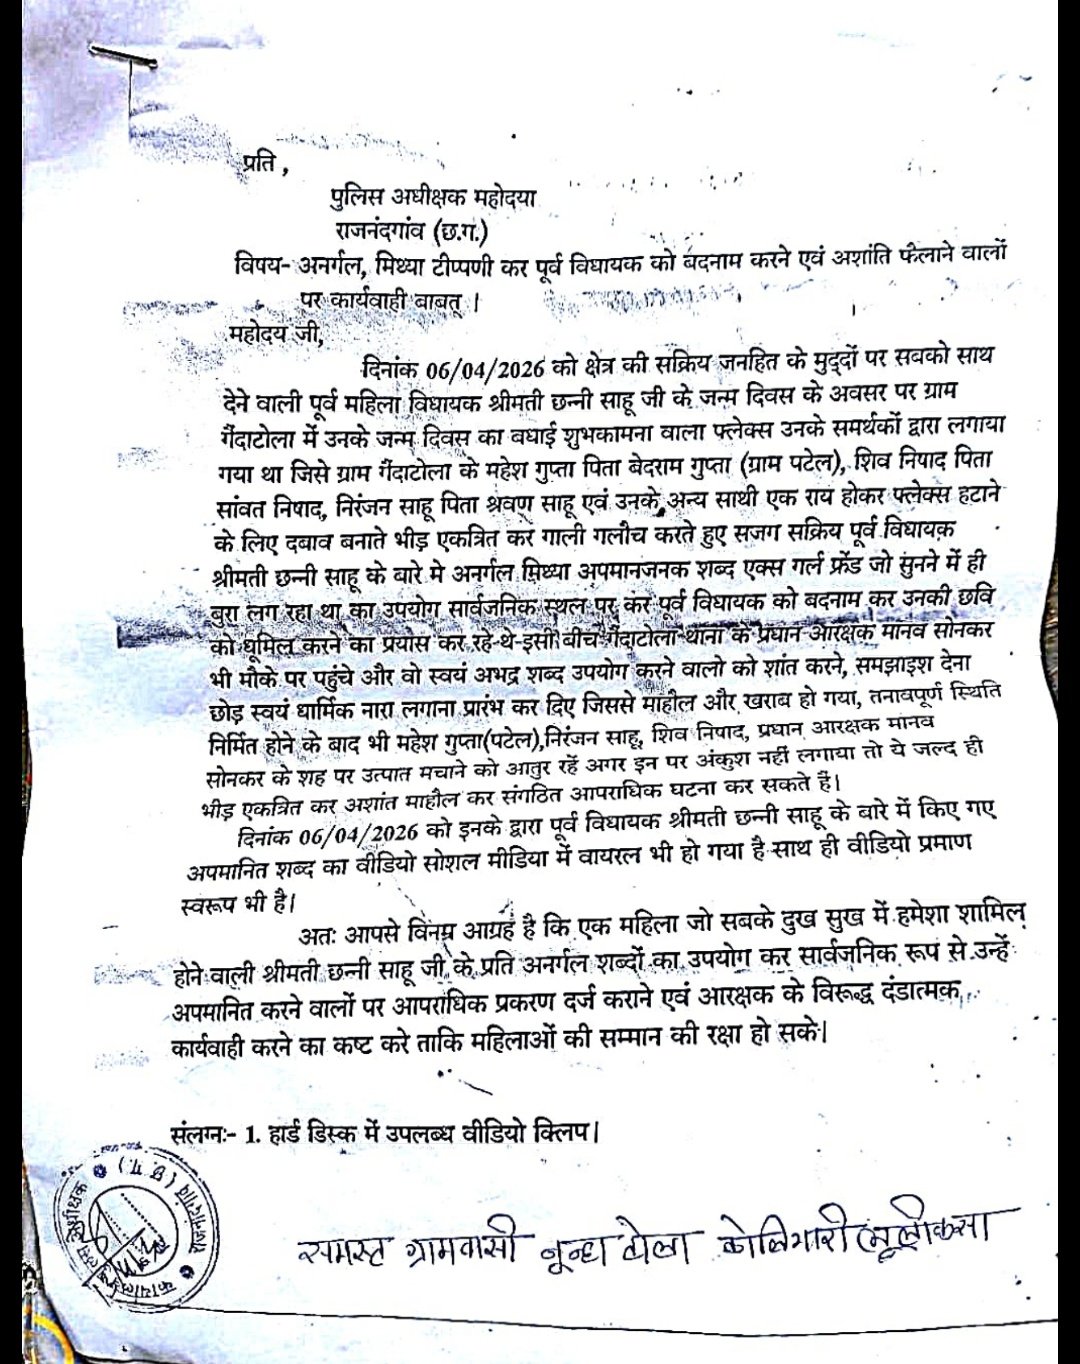 प्रति ,
पुलिस अधीक्षक महोदया
राजनंदगांव (छ.ग.)
विषय- अनर्गल, मिथ्या टीप्पणी कर पूर्व विधायक को बदनाम करने एवं अशांति फैलाने वालों
पर कार्यवाही बाबत् ।
महोदय जी,
दिनांक 06/04/2026 को क्षेत्र की सक्रिय जनहित के मुद्दों पर सबको साथ
देने वाली पूर्व महिला विधायक श्रीमती छन्नी साहू जी के जन्म दिवस के अवसर पर ग्राम
गैंदाटोला में उनके जन्म दिवस का बधाई शुभकामना वाला फ्लेक्स उनके समर्थकों द्वारा लगाया
गया था जिसे ग्राम गैंदाटोला के महेश गुप्ता पिता बेदराम गुप्ता (ग्राम पटेल), शिव निषाद पिता
सांवत निषाद, निरंजन साहू पिता श्रवण साहू एवं उनके अन्य साथी एक राय होकर फ्लेक्स हटाने
के लिए दबाव बनाते भीड़ एकत्रित कर गाली गलौच करते हुए सजग सक्रिय पूर्व विधायक
श्रीमती छन्नी साहू के बारे मे अनर्गल मिथ्या अपमानजनक शब्द एक्स गर्ल फ्रेंड जो सुनने में ही
बुरा लग रहा था का उपयोग सार्वजनिक स्थल पर कर पूर्व विधायक को बदनाम कर उनकी छवि
को धूमिल करने का प्रयास कर रहे थे इसी बीच गैंदाटोला थाना के प्रधान आरक्षक मानव सोनकर
भी मौके पर पहुंचे और वो स्वयं अभद्र शब्द उपयोग करने वालो को शांत करने, समझाइश देना
छोड़ स्वयं धार्मिक नारा लगाना प्रारंभ कर दिए जिससे माहौल और खराब हो गया, तनावपूर्ण स्थिति
निर्मित होने के बाद भी महेश गुप्ता(पटेल),निरंजन साहू, शिव निषाद, प्रधान आरक्षक मानव
सोनकर के शह पर उत्पात मचाने को आतुर रहें अगर इन पर अंकुश नहीं लगाया तो ये जल्द ही
भीड़ एकत्रित कर अशांत माहौल कर संगठित आपराधिक घटना कर सकते हैं।
दिनांक 06/04/2026 को इनके द्वारा पूर्व विधायक श्रीमती छन्नी साहू के बारे में किए गए
अपमानित शब्द का वीडियो सोशल मीडिया में वायरल भी हो गया है साथ ही वीडियो प्रमाण
स्वरूप भी है।
अतः आपसे विनम्र आग्रह है कि एक महिला जो सबके दुख सुख में हमेशा शामिल
होने वाली श्रीमती छन्नी साहू जी के प्रति अनर्गल शब्दों का उपयोग कर सार्वजनिक रूप से उन्हें
अपमानित करने वालों पर आपराधिक प्रकरण दर्ज कराने एवं आरक्षक के विरूद्ध दंडात्मक
कार्यवाही करने का कष्ट करे ताकि महिलाओं की सम्मान की रक्षा हो सके।
संलग्नः- 1. हार्ड डिस्क में उपलब्ध वीडियो क्लिप।
समस्त ग्रामवासी
कार्यालय पुलिस अधीक्षक राजनांदगांव (छ.ग.)